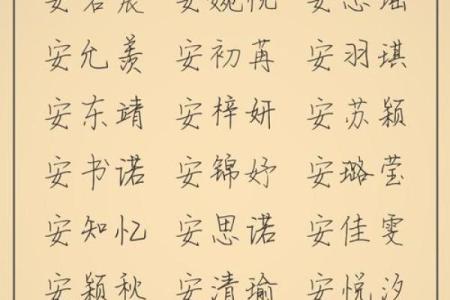 安允羡 安初苒 安羽琪
安东靖 安梓妍 安苏颖
安书诺 安锦妤 安璐莹
安知忆 安思诺 安佳雯
安颖秋 安清瑜 安悦汐